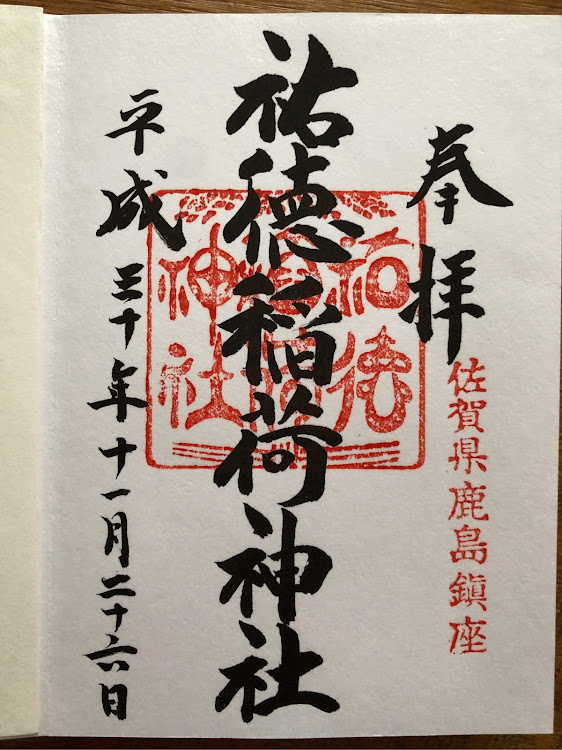 奉拝
佐賀県鹿島鎮座
祐徳稲荷神社
祐徳
稲荷
神社
平成三十年十一月二十六日